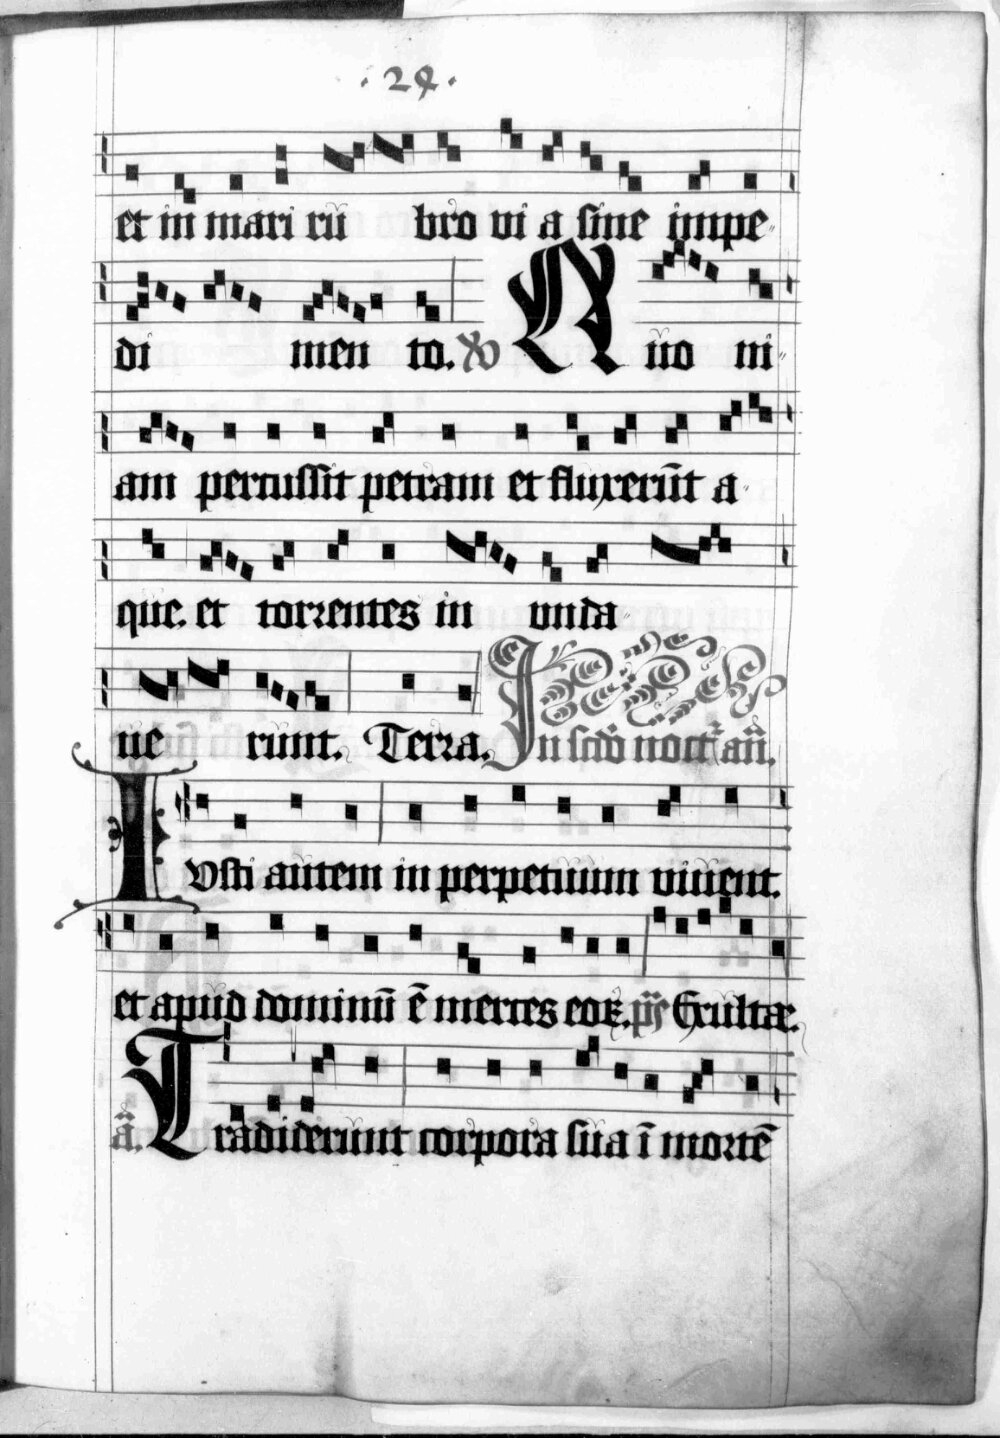 · 24 ·
et in mari rū bro vi a sine impe
di men to. V Q uo ni
am percussit petram et fluxerūt a
que. et torrentes in unda
ue runt. Terra. In scdo noct an.
Iusti autem in perpetuum vivent.
et apud dominū ē merces eoꝝ. ps Exultate.
a. Tradiderunt corpora sua ī mortē